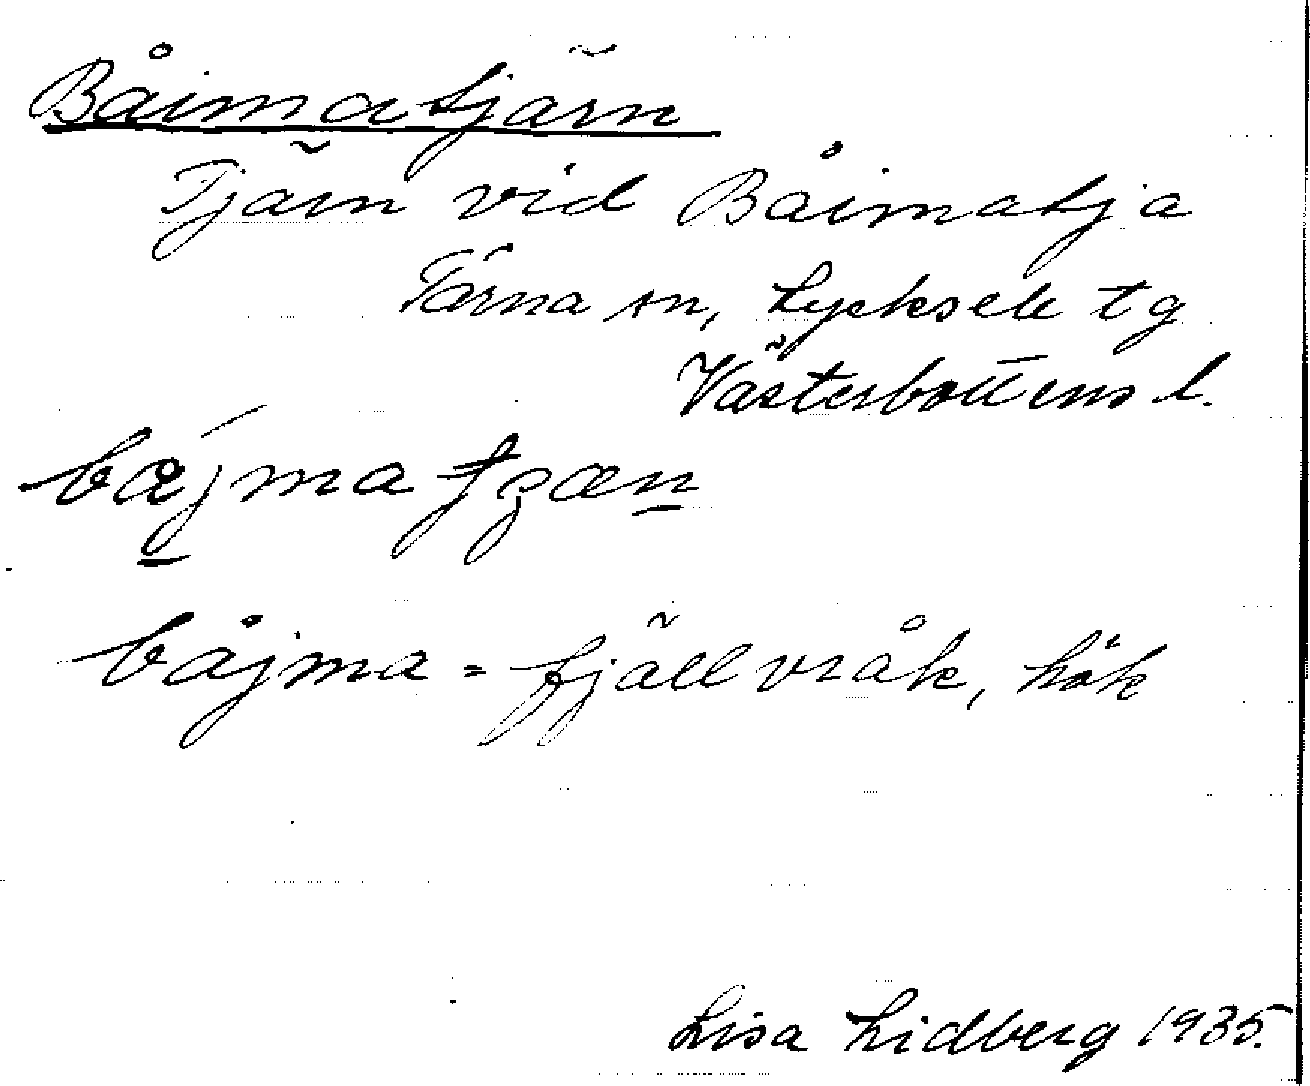 Båimatjärn
Tjärn vid Båimatja
Tärna sn, Lycksele tg
Västerbottens l.
båjma = fjällvråk, hök
Lisa Lidberg 1935.